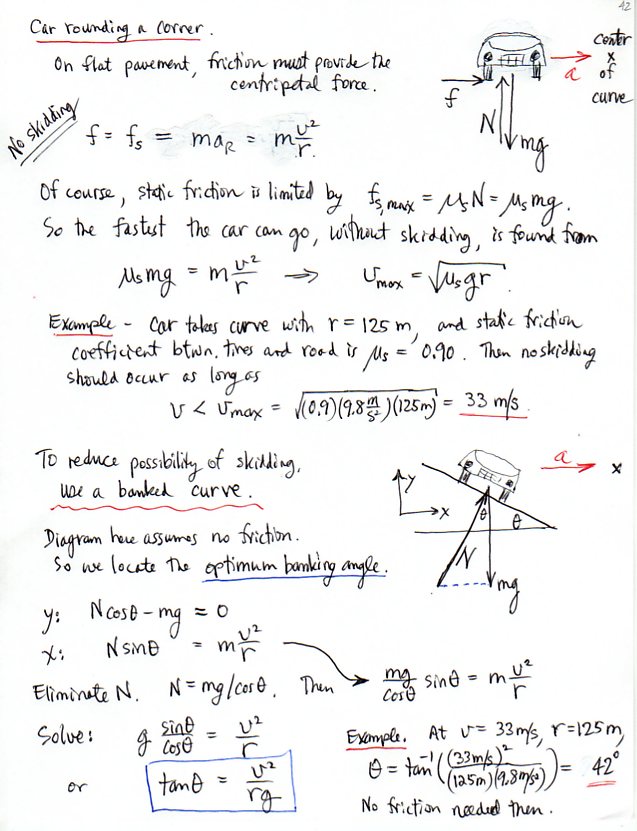 42
Car rounding a corner.
On flat pavement, friction must provide the
centripetal force.
center
x
of
curve
a
f
N
mg
No skidding
f = fs = maR = m v²/r.
Of course, static friction is limited by fs,max = μsN = μsmg.
So the fastest the car can go, without skidding, is found from
μsmg = m v²/r ⟹ vmax = √(μsgr).
Example - Car takes curve with r = 125 m, and static friction
coefficient btwn. tires and road is μs = 0.90. Then no skidding
should occur as long as
v < vmax = √((0.9)(9.8 m/s²)(125m)) = 33 m/s.
To reduce possibility of skidding,
use a banked curve.
a
x
y
x
θ
θ
N
mg
Diagram here assumes no friction.
So we locate the optimum banking angle.
y: Ncosθ - mg = 0
x: Nsinθ = m v²/r
Eliminate N. N = mg/cosθ. Then mg/cosθ sinθ = m v²/r
Solve: g sinθ/cosθ = v²/r
or tanθ = v²/rg
Example. At v = 33m/s, r = 125m,
θ = tan⁻¹((33m/s)²/(125m)(9.8m/s²)) = 42°
No friction needed then.